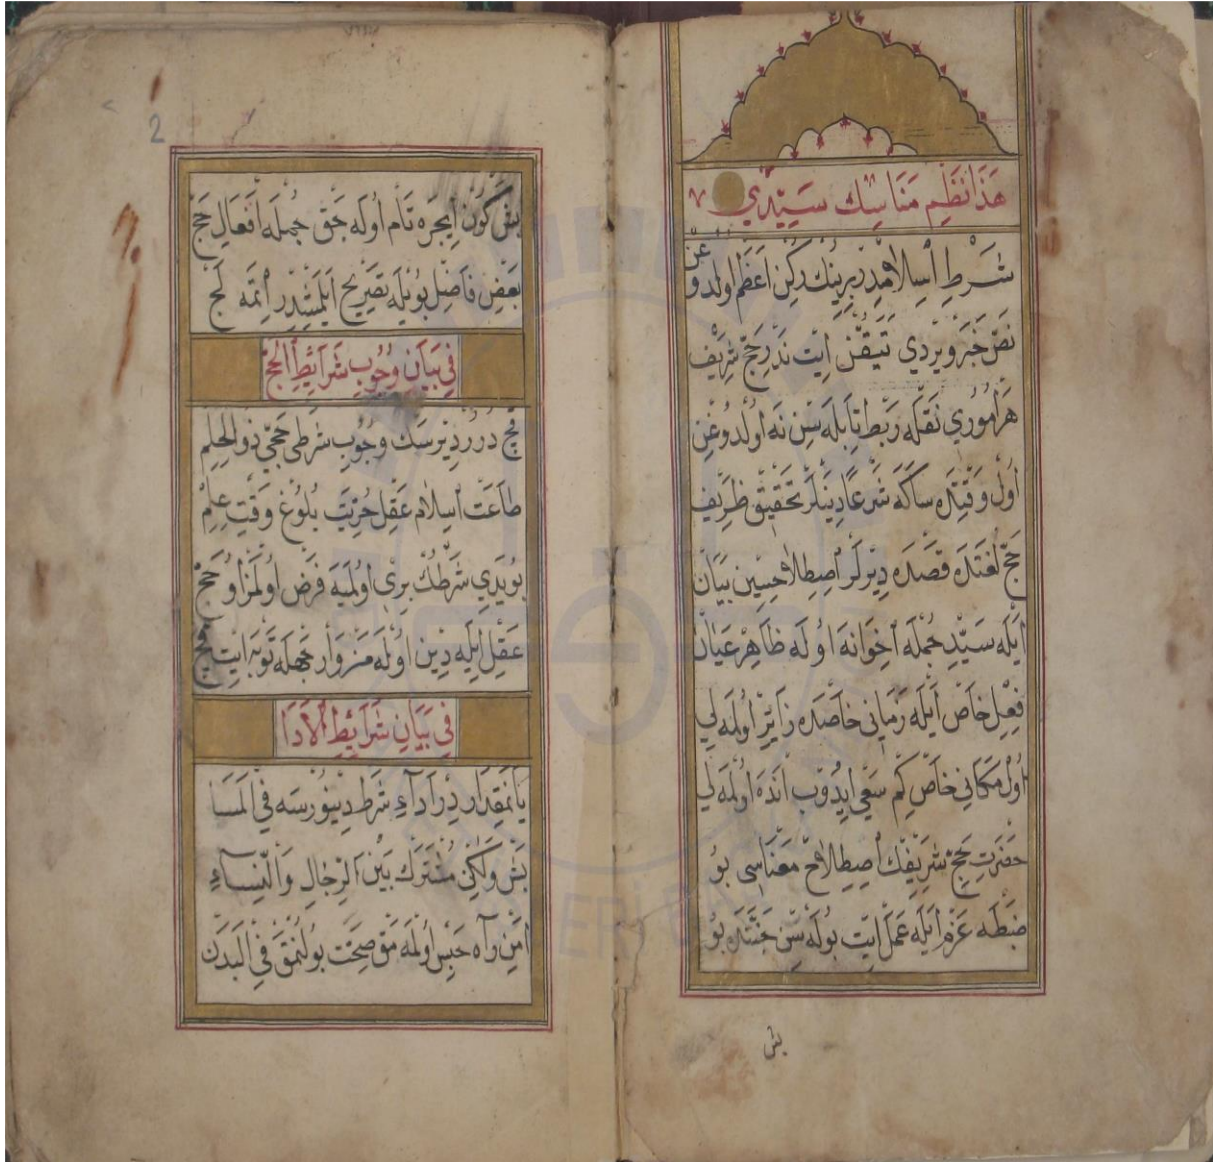 هَذَا نَظْمِ مَنَاسِك سَيِّدِي
شَرْطِ اْسِلَامْدِر بِرِينُكْ رُكْنِ اَعْظَم اولدوغن
نَصّ خَبَر وِيرْدِي تَيَقُّنْ اِيت نَدِر حَجّ شَرِيف
هَر اُمُورِي نَقْلَه رَبْط اِيله سِن نَه اُولدُوغُن
اُول وَقِتْدَه ساكَه شَرْعًا دِينِلَر تَحْقِيق ظَرِيف
حَجّ لُغَتْدَه قَصْدَه دِيْرلَر اْصِطِلَاحِسِين بَيَان
اَيْلَه سَيِّد جُمْلَه اَخِوَانَه اُولَه ظَاهِر عَيَان
فِعْلِ خَاصّ اَيْلَه زَمَانِي خاصّده زَايِرْ اُولْمَه لِي
اُول مَكَانِي خَاصّ كِم سَعْي اِيدُوب اَنْدَه اُولْمَه لِي
حَضْرَتِ حَجِّ شَرِيفِك اْصِطِلَاح مَعْنَاسِي بُو
ضَبْطَه عَزْم اَيْلَه عَمَل اِيت بُولَه سِن جَنَّتْدَه بُو
بش
2
بَش كُون اِيچره تَام اُولَه جَق جُمْلَه اَفْعَالِ حَجّ
بَعْضِ فَاضِل بُويْلَه تَصْرِيح اَيْلَمِشْدِر اِتمَه لَج
فِي بَيَانِ وُجُوبِ شَرَائِطِ الْحَجّ
قَچ دُرُر دِيْرسَك وُجُوبِ شَرْطِي حَجِّي ذُو الْحِلِم
طَاعَت اْسِلَام عَقِل حُرِّيَت بُلُوغ وَقْت عِلِمْ
بُو يَدِي شَرْطُكْ بِرِي اُولْمَيَه فَرْض اُولْمَز اُو حَجّ
عَقْل اَيْلَه دِين اُولَه مَز وَار جَهْلَه تَوْبَه اِيت
فِي بَيَانِ شَرَائِطِ الْاَدَا
يَا نَمِقْدَار دِر اَدَآءِ شَرْط دِينُورسَه فِي الْمَسَا
بَش وَلَكِن مُشْتَرَك بَيْنَ الرِّجَالِ وَالنِّسَاءِ
اَمْنِ رَاه حَبِس اُولْمَه مَق صِحَّت بُولُنْمَق فِي الْبَدَن